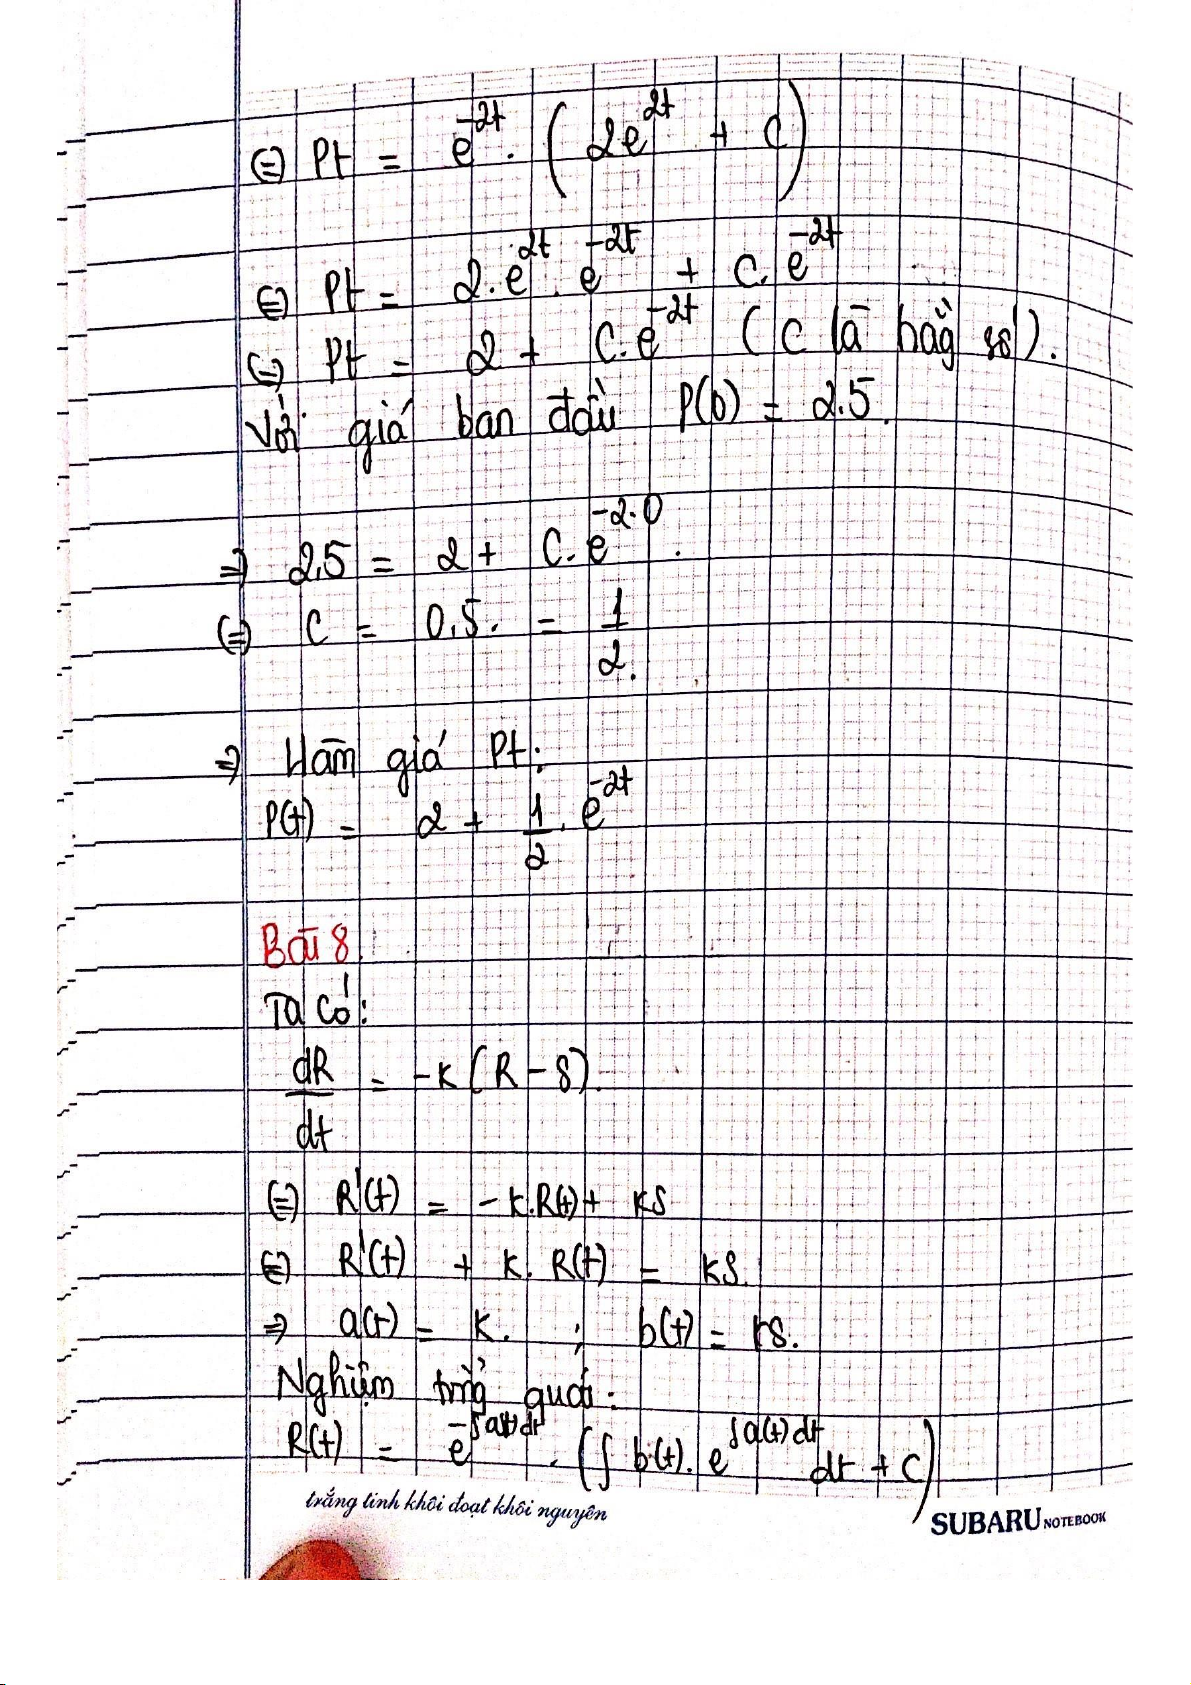 (=) Pt = e^{-2t} . ( 2e^{2t} + C )
(=) Pt = 2.e^{2t} . e^{-2t} + C. e^{-2t}
(=) Pt = 2 + C.e^{-2t} ( C là hằg số ).
Với giá ban đầu P(0) = 2.5.
=> 2,5 = 2 + C. e^{-2.0} .
(=) C = 0,5. = 1/2.
=> Hàm giá Pt:
P(t) = 2 + 1/2 . e^{-2t}
Bài 8.
Ta có:
dR/dt = -k ( R - S ).
(=) R'(t) = -k.R(t) + kS
(=) R'(t) + k. R(t) = kS.
=> a(t) = k. ; b(t) = kS.
Nghiệm tổng quát:
R(t) = e^{-∫a(t)dt} . ( ∫ b(t). e^{∫a(t)dt} dt + C )
trắng tinh khôi đoạt khôi nguyên
SUBARU NOTEBOOK